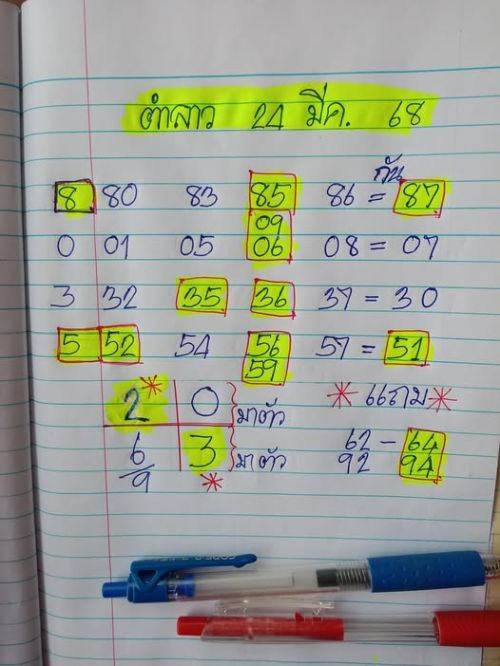 ตำลาว 24 มีค. 68
กัน
8 80 83 85 86 = 87
09
0 01 05 06 08 = 07
3 32 35 36 37 = 30
5 52 54 56 57 = 51
59
2* 0 } มาตัว * แถม *
6 3 } มาตัว 62 - 64
9 * 92 94